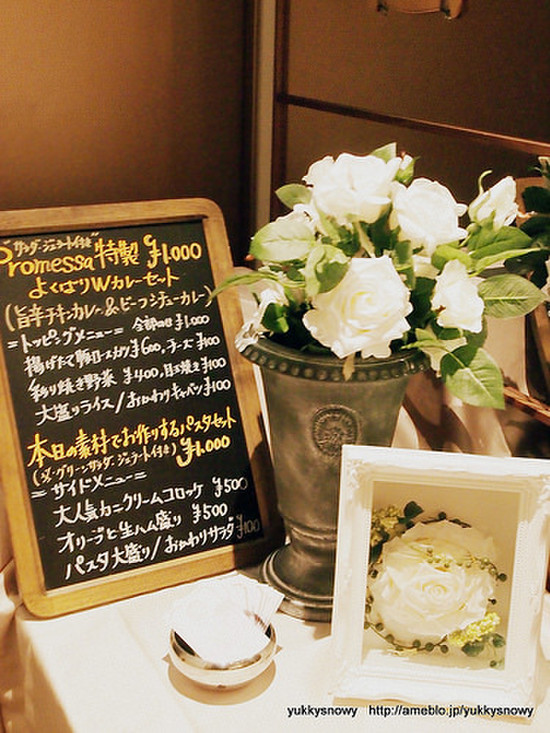 サラダ・ジェラート付き
"Promessa"特製 ¥1.000
よくばりWカレーセット
(旨辛チキンカレー&ビーフシチューカレー)
=トッピングメニュー= 全部のせ ¥1.000
揚げたて豚ロースカツ ¥600, チーズ ¥100
彩り焼き野菜 ¥400, 目玉焼き ¥100
大盛りライス/おかわりキャベツ ¥100
本日の素材でお作りするパスタセット
グリーンサラダ・ジェラート付 ¥1.000
=サイドメニュー=
大人気カニクリームコロッケ ¥500
オリーブと生ハム盛り ¥500
パスタ大盛り/おかわりサラダ ¥100
yukkysnowy http://ameblo.jp/yukkysnowy